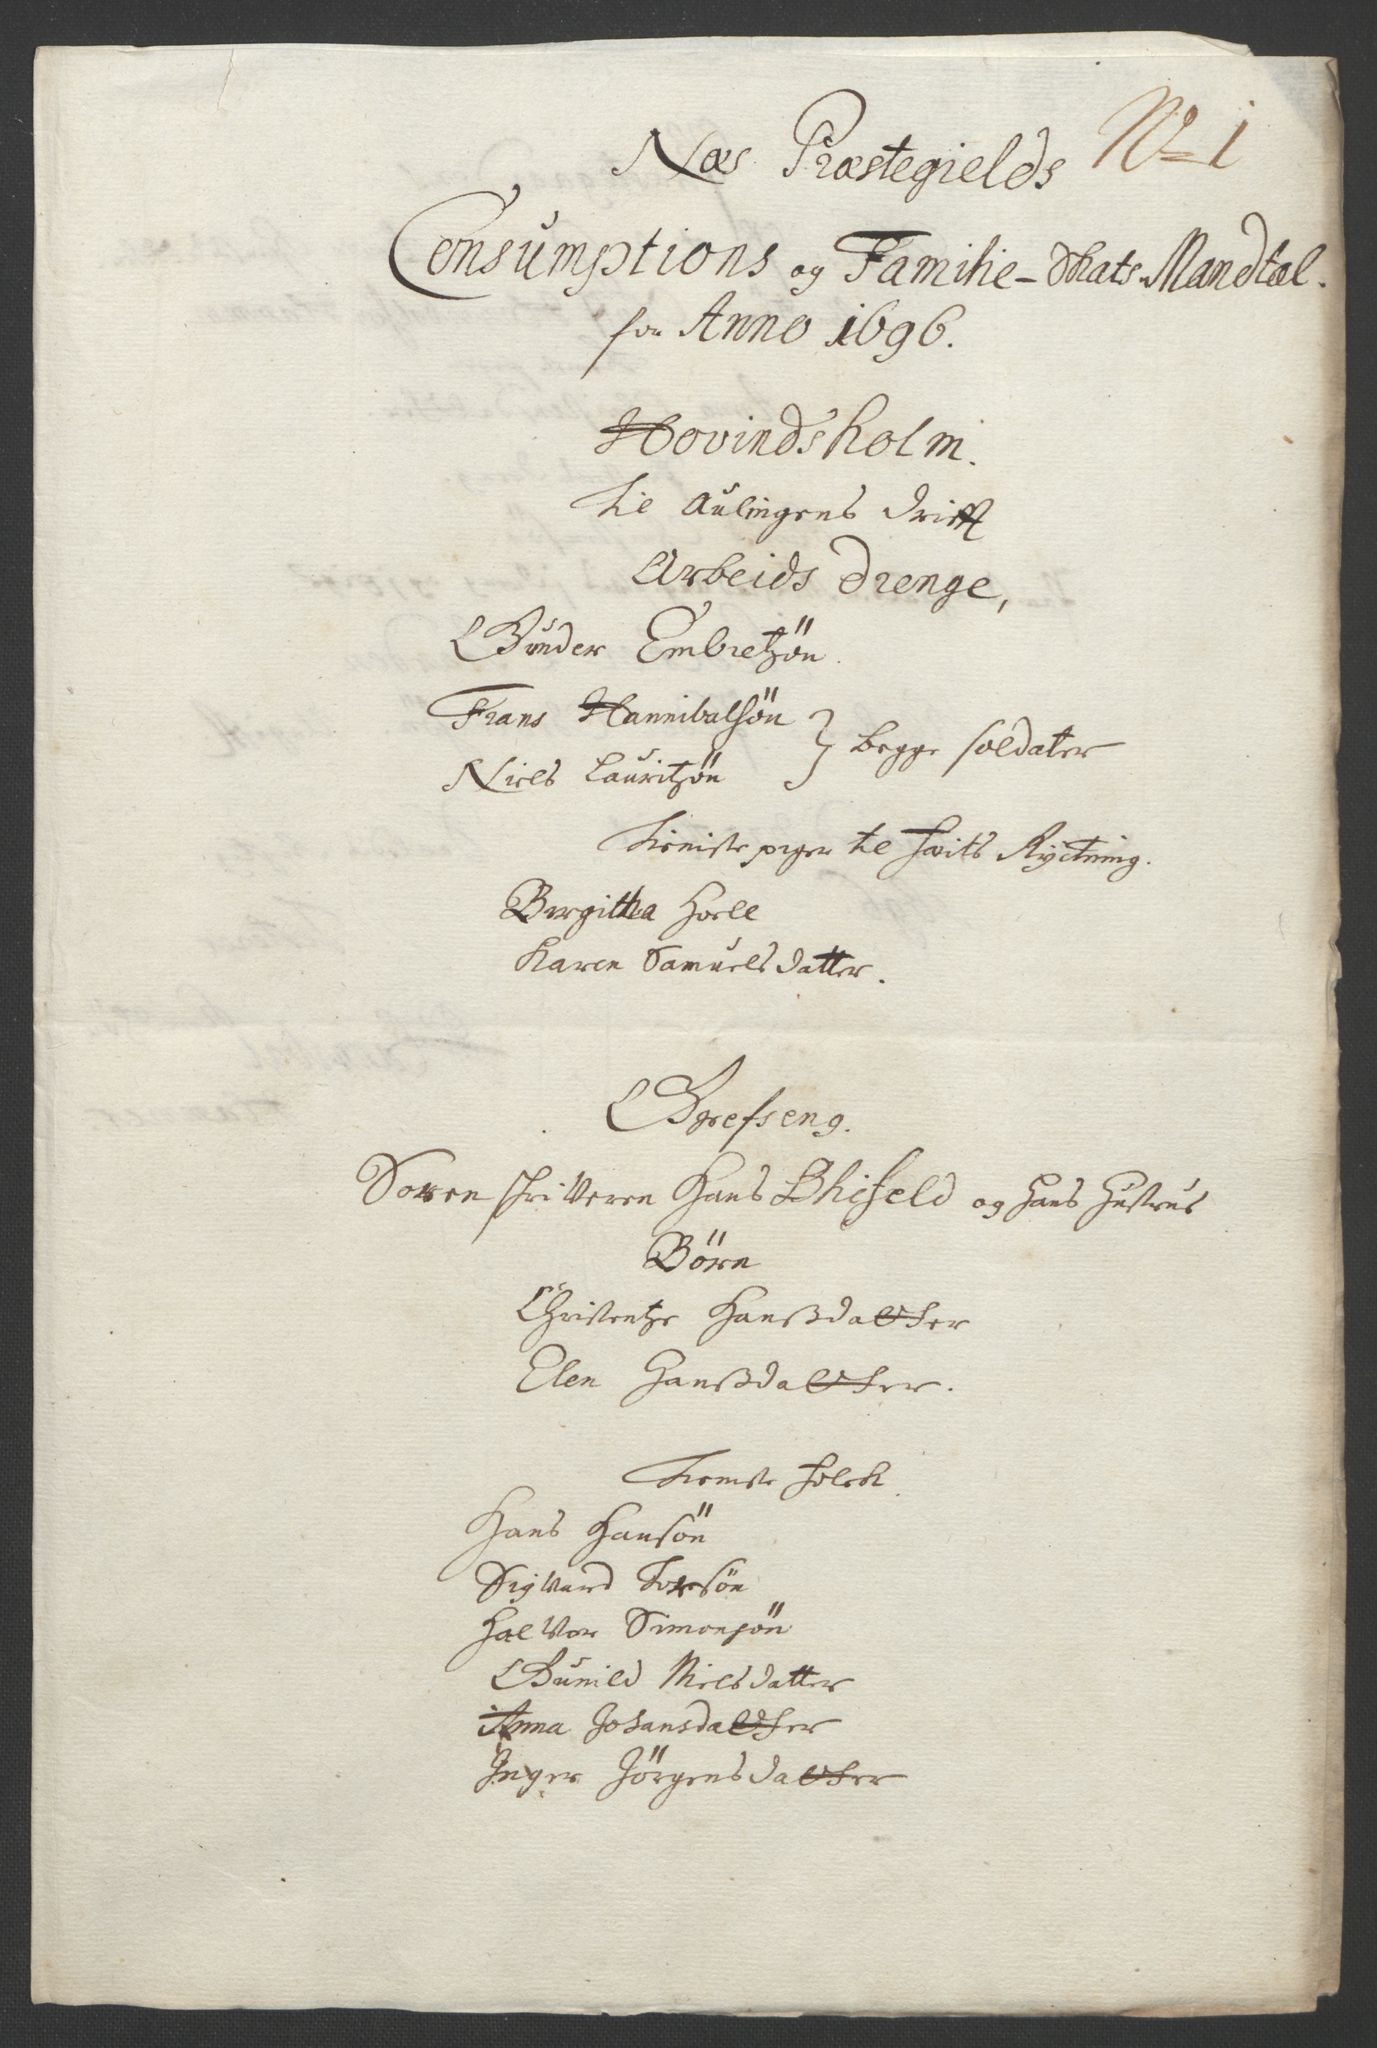 No 1
Næs Præstegields
Consumptions og Familie-Skats Mandtal.
for Anno 1696.
Hovindsholm.
til Aulingens drift
Arbeids drenge,
Gunder Embretzön.
Frans Hannibalsön } begge soldater
Niels Lauritzön
tieniste piger til Røctning.
Birgitha
Karen Samuels datter.
Grefseng.
Soren skriveren Hans og Hans Hustrus
Börn
Christentze Hanßdatter
Elen Hanßdatter.
tieniste folck.
Hans Hansön
Sigvard Torsön
Halvor Simonsön
Gunild Nielsdatter
Anna Johansdatter
Inger Jörgensdatter